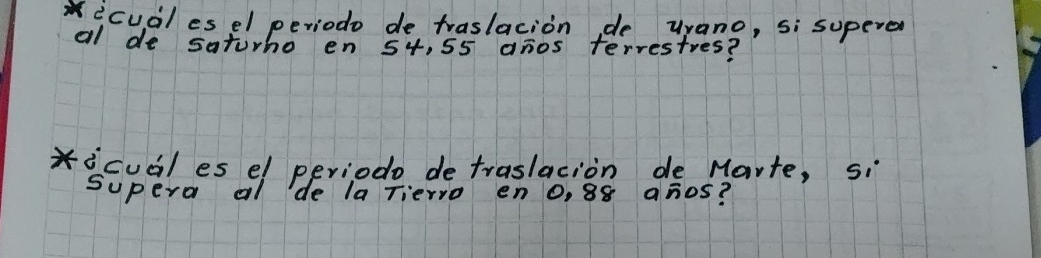 * ¿cuál es el periodo de traslación de urano, si supera
al de saturno en 54,55 años terrestres?
* ¿cuál es el periodo de traslación de Marte, si
supera al de la Tierra en 0,88 años?